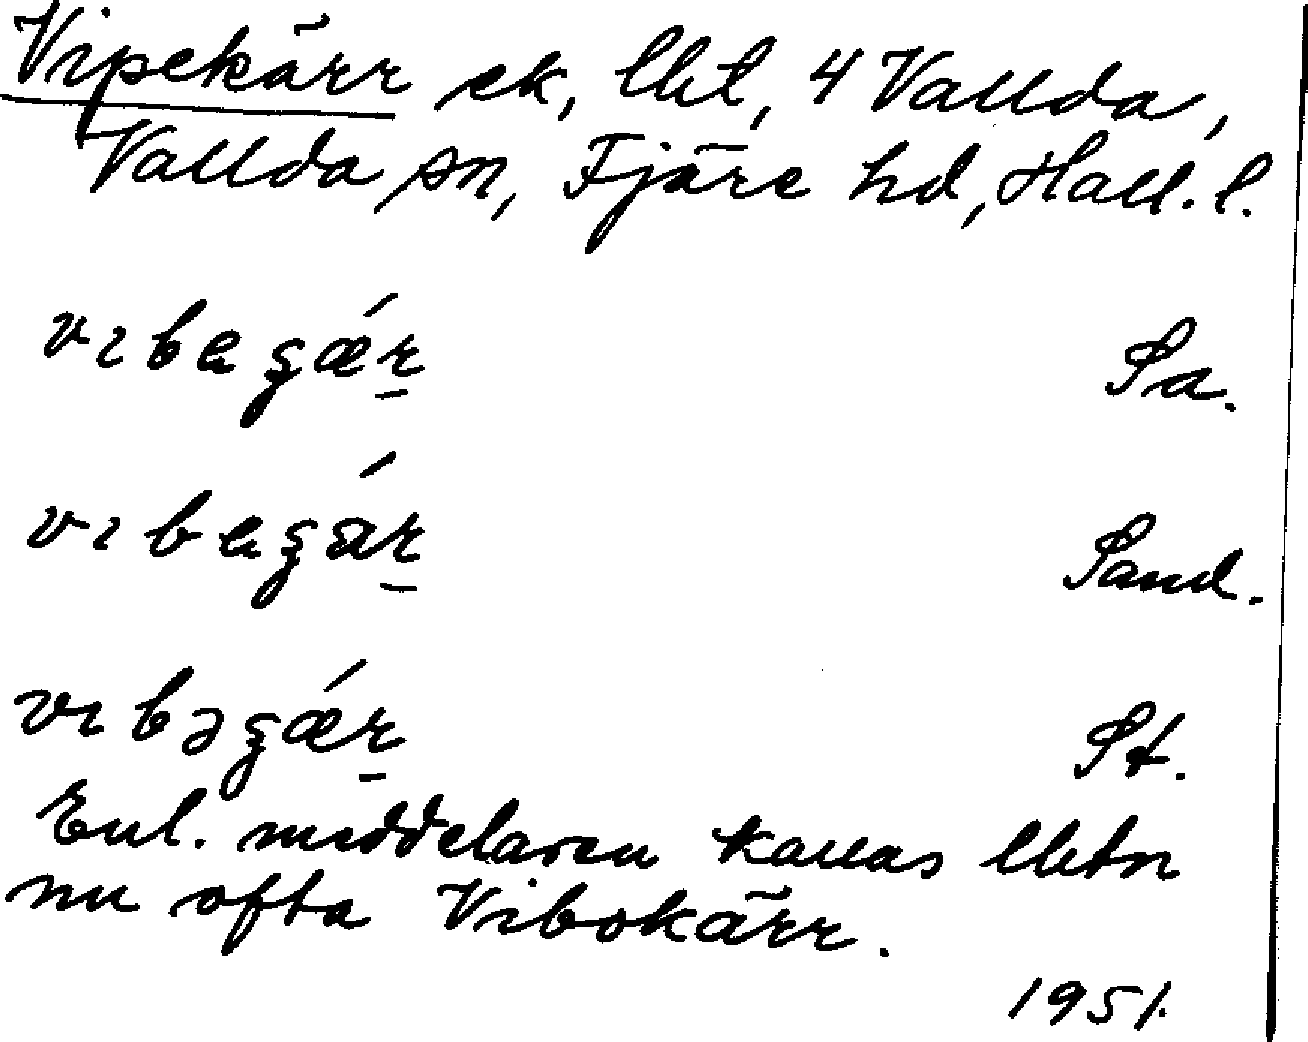 Vipekärr ek, lht, 4 Vallda,
Vallda sn, Fjäre hd, Hall. l.
Sa.
Sand.
St.
Enl. meddelaren kallas lhtn
nu ofta Vibokärr.
1951.